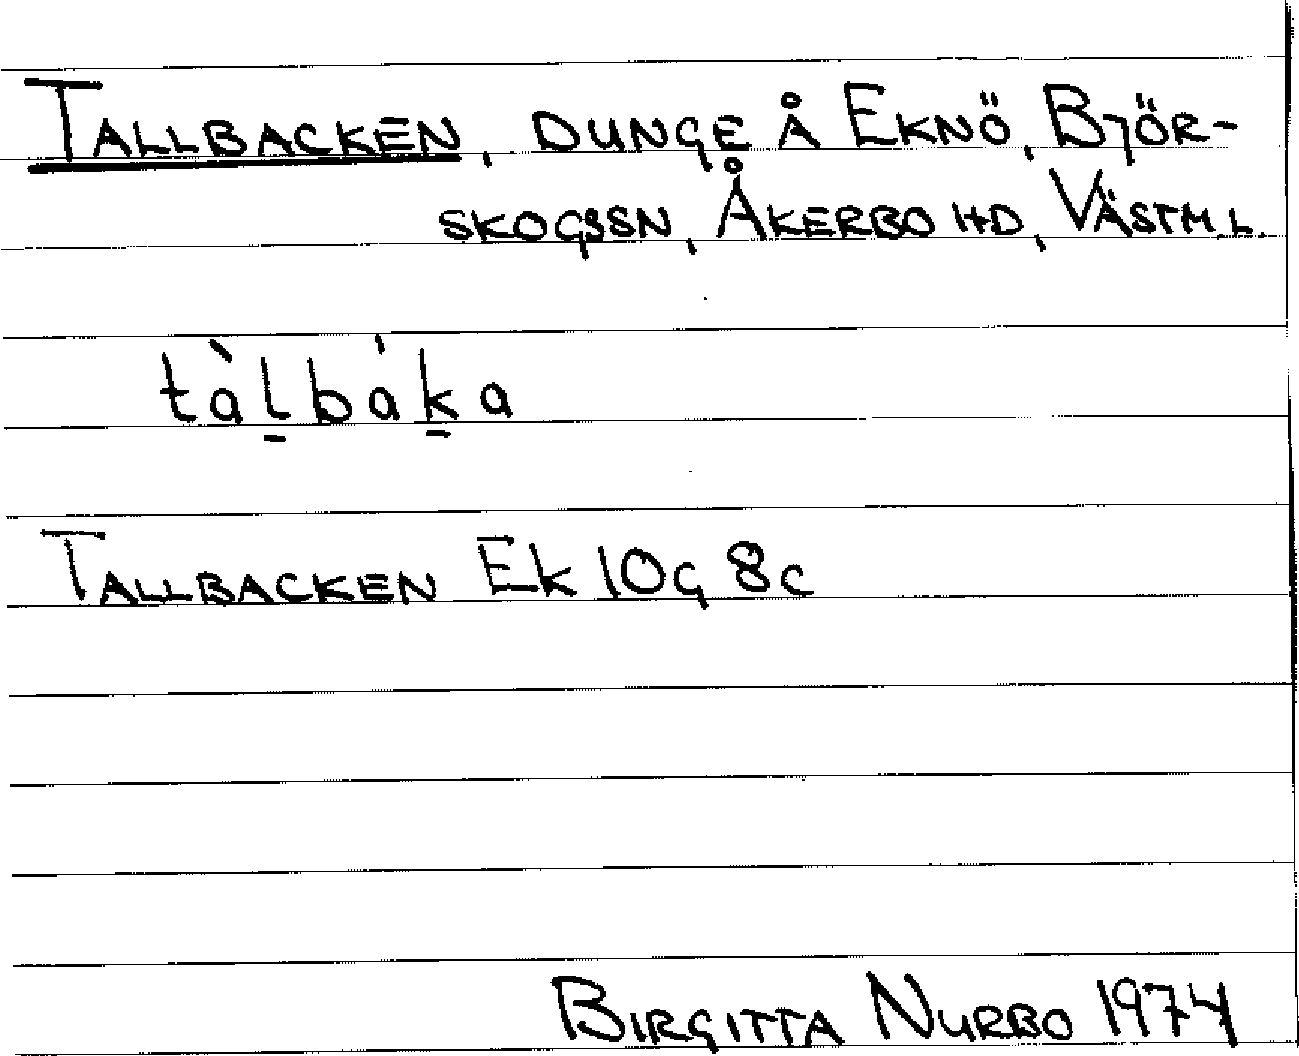 TALLBACKEN, DUNGE Å EKNÖ, BJÖR-
SKOGSSN, ÅKERBO HD, VÄSTM.L.
tàl̠bák̠a
TALLBACKEN Ek 10g 8c
BIRGITTA NURBO 1974